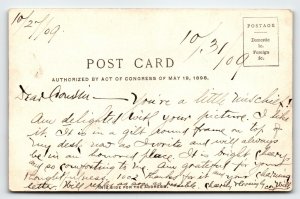 10/27/09
POSTAGE
Domestic 1c.
Foreign 2c.
10/31/09
POST CARD
AUTHORIZED BY ACT OF CONGRESS OF MAY 19, 1898.
Dear Cousin – You're a little mischief!
Am delighted with your picture. I like
it. It is in a gilt round frame on top of
my desk near as I write and will always
be in an honored place. It is bright cheery
and as comforting to me. Am grateful for your
thoughtfulness, 1002 thanks for it and your charming
letter. Will reply as soon as possible,
THIS SIDE FOR THE ADDRESS.